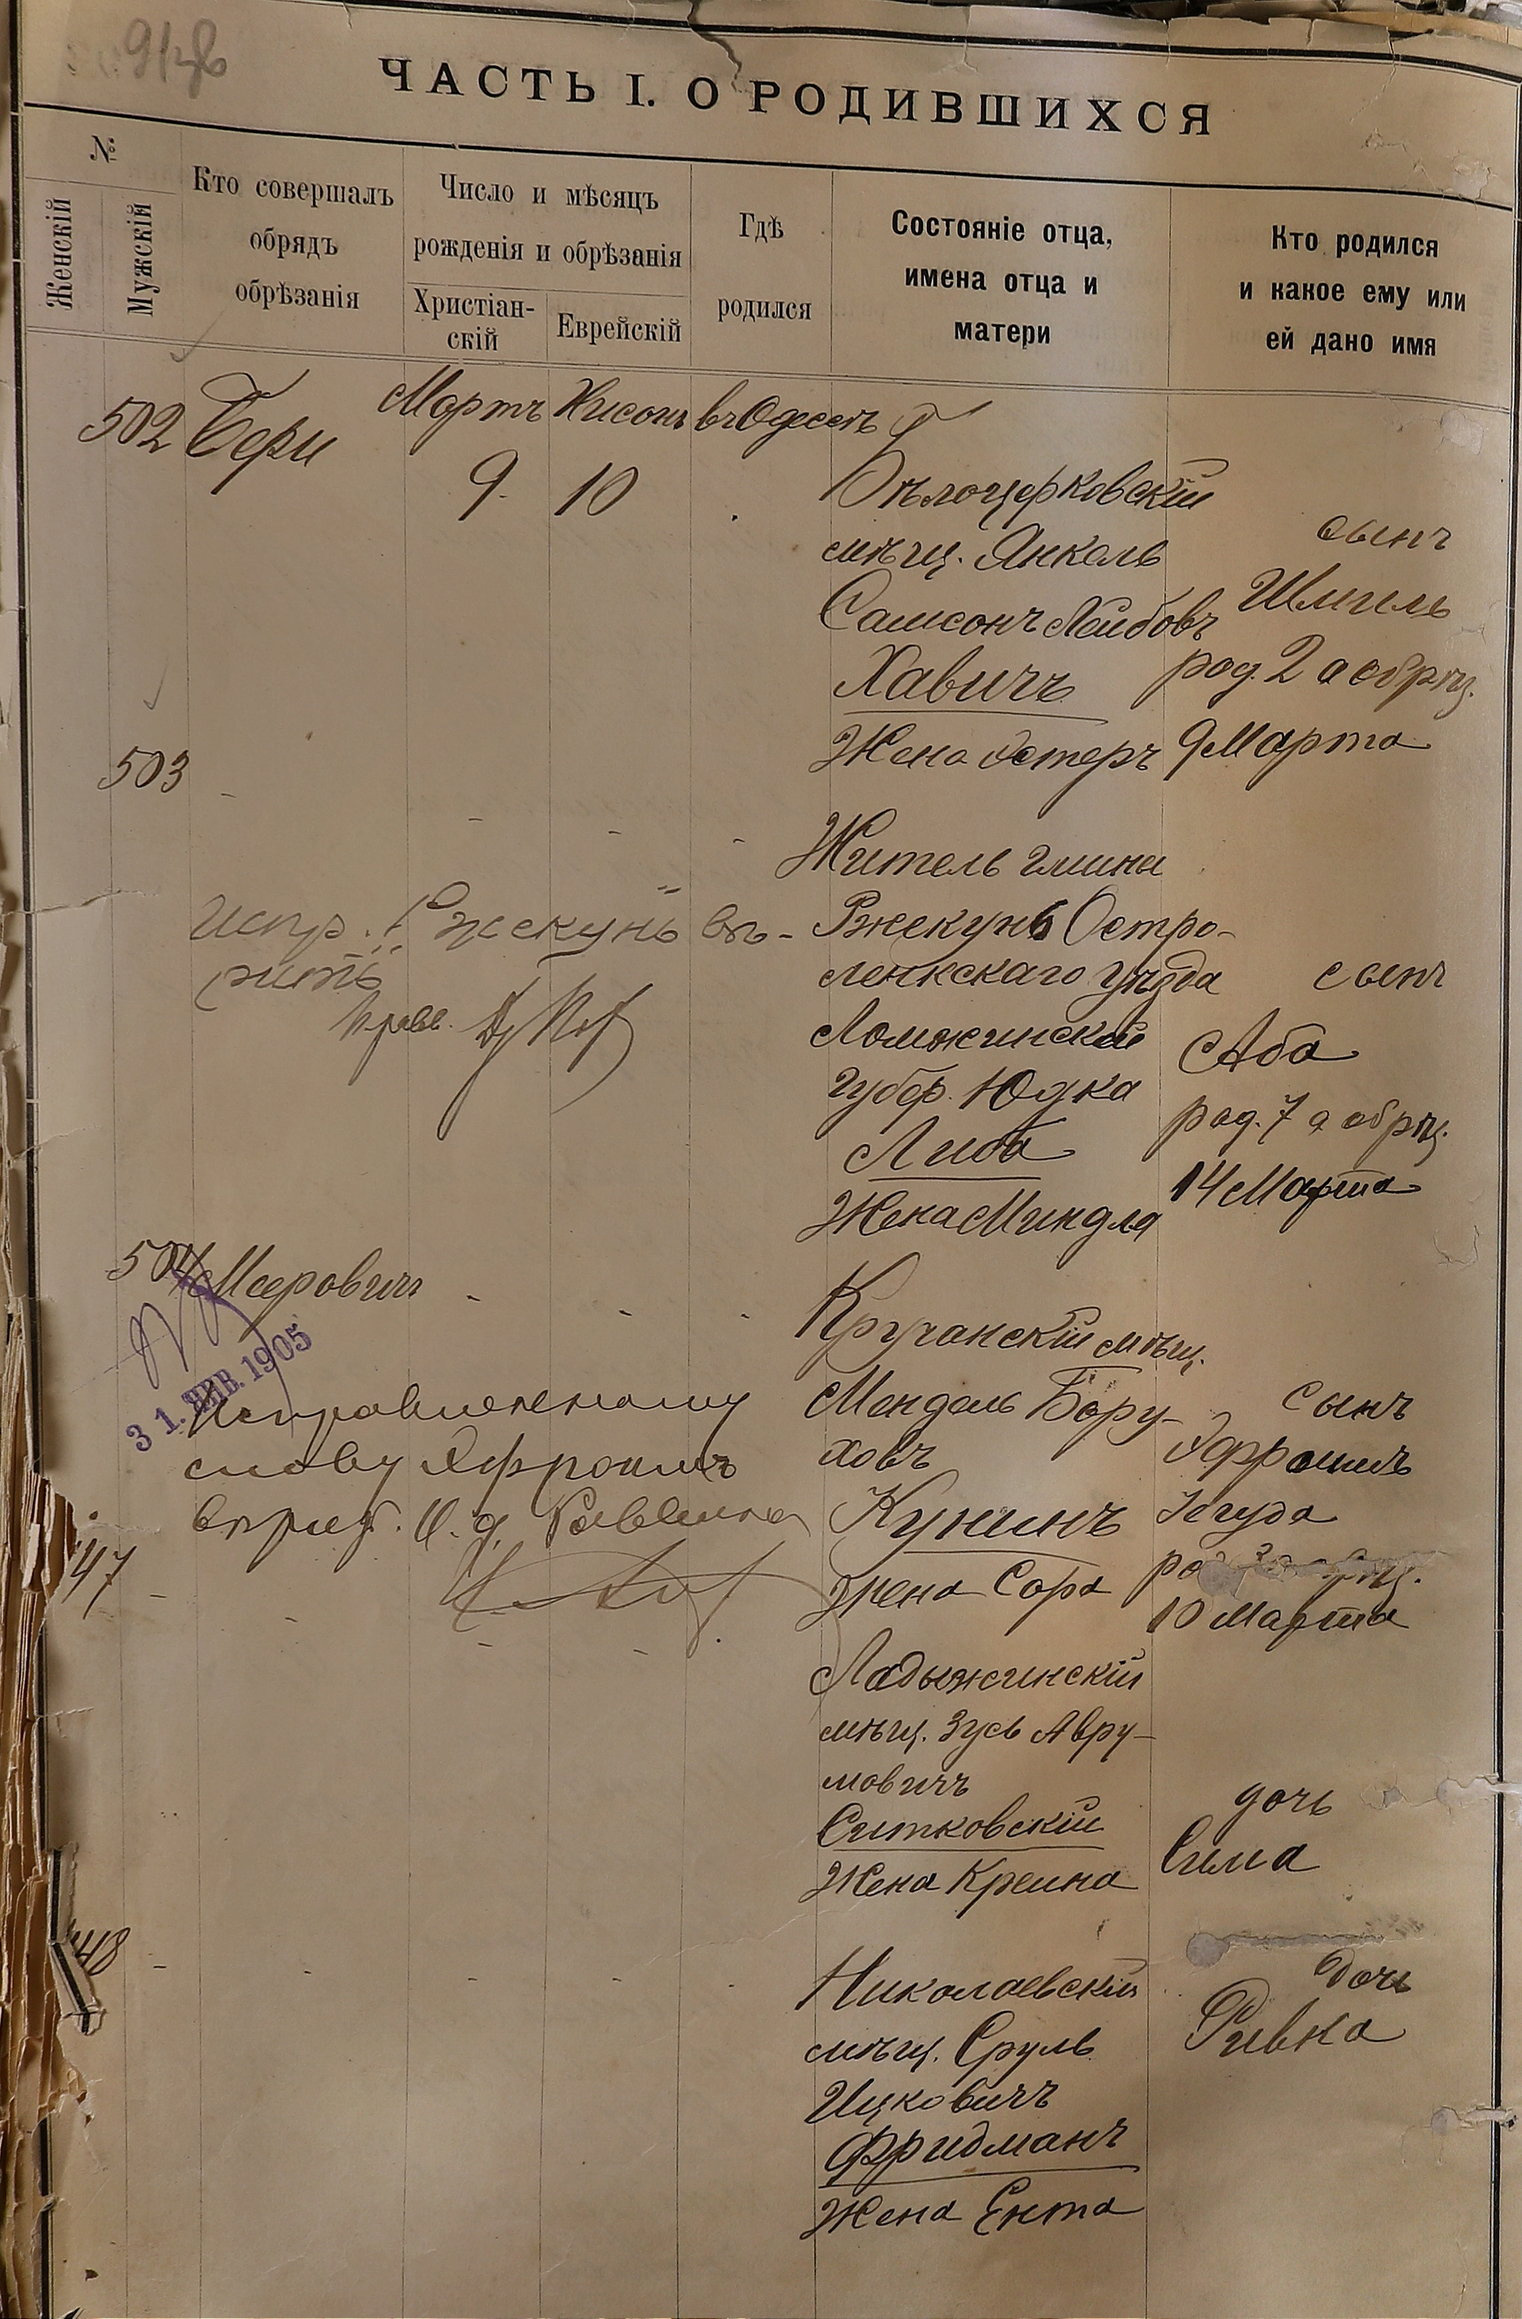 ЧАСТЬ I. О РОДИВШИХСЯ
№
Женскій
Мужскій
Кто совершалъ
обрядъ
обрѣзанія
Число и мѣсяцъ
рожденія и обрѣзанія
Христіан-
скій
Еврейскій
Гдѣ
родился
Состояніе отца,
имена отца и
матери
Кто родился
и какое ему или
ей дано имя
502 Бери Мартъ Нисонъ въ Одессѣ
9. 10
Бѣлоцерковскій
мѣщ. Янкель
Самсонъ Лейбовъ
Хавичъ
Жена Эстеръ
сынъ
Шмиль
род. 2 а обрѣз.
9 Марта
503
Житель гмины
Ржекунь Остро-
ленкскаго уѣзда
Ломжинской
губер. Юдка
Либа
Жена Миндля
сынъ
Аба
род. 7 а обрѣз.
14 Марта
Испр. Ржекунь вѣ-
рить
504 Мееровичъ
31. ЯНВ. 1905
Исправленному
слову Эфроимъ
вѣрить. И. д. Раввина
Кручанскій мѣщ.
Мендель Бору-
ховъ
Кунинъ
Жена Сора
сынъ
Эфроимъ
Іегуда
10 Марта
47
Ладыжинскій
мѣщ. Зусь Авру-
мовичъ
Ситковскій
Жена Крейна
дочь
Сима
48
Николаевскій
мѣщ. Сруль
Ицковичъ
Фридманъ
Жена Ента
дочь
Ривка